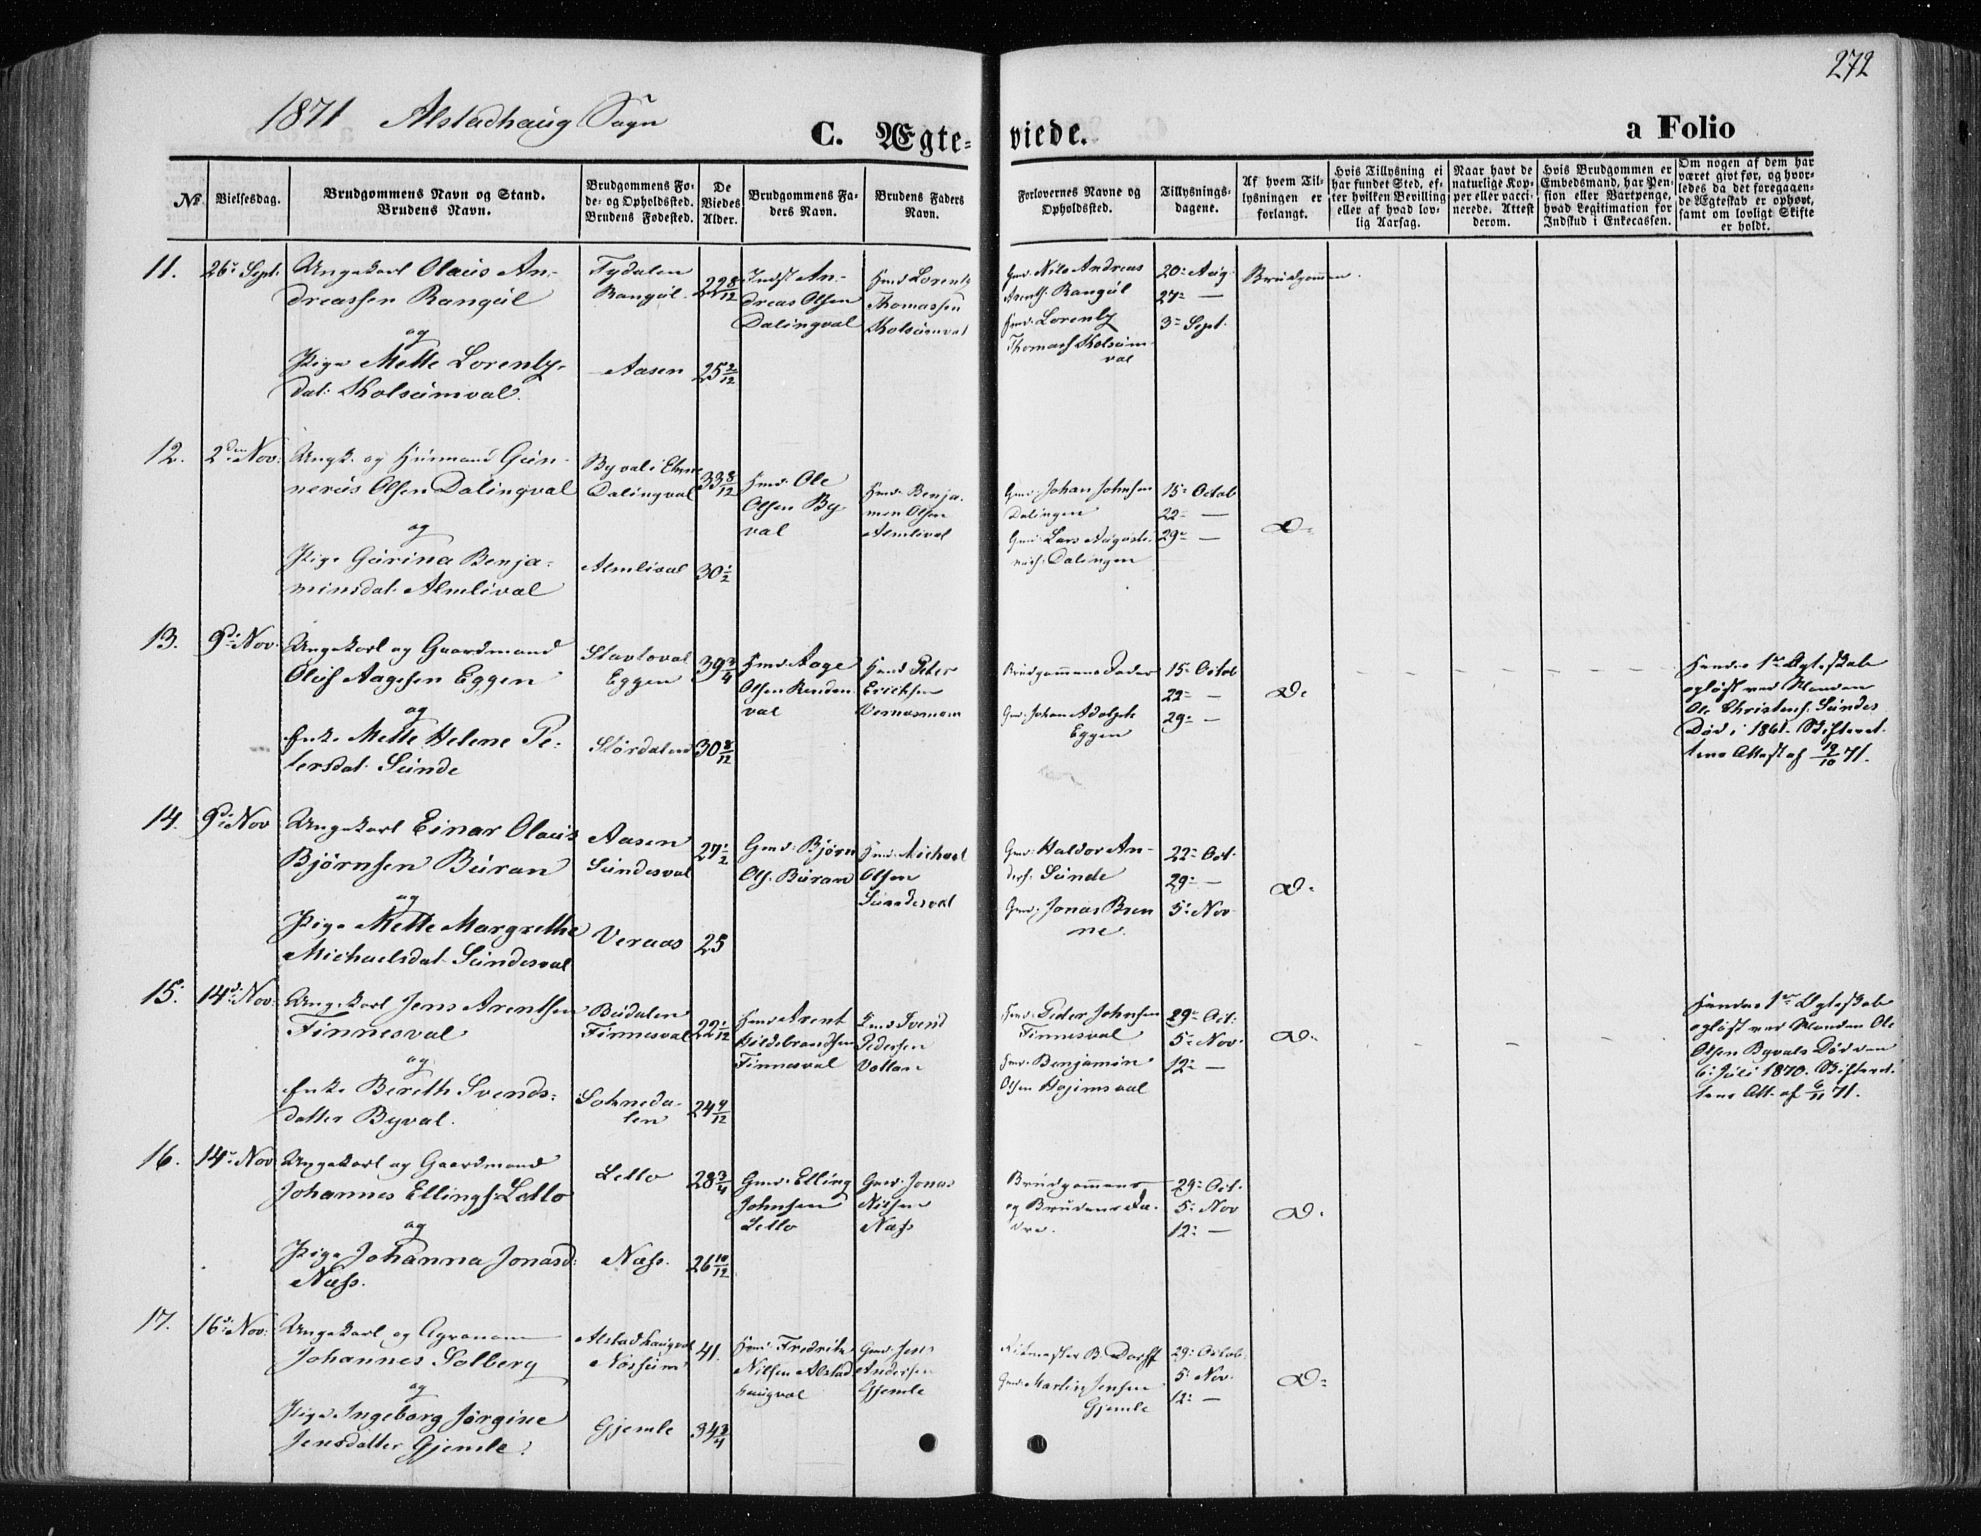 272
1871 Alstadhaug Sogn
C. Ægte-viede.
a Folio
No.
Vielsesdag.
Brudgommens Navn og Stand.
Brudens Navn.
Brudgommens Fø-
de- og Opholdssted.
Brudens Fødested.
De
Viedes
Alder.
Brudgommens Fa-
ders Navn.
Brudens Faders
Navn.
Forlovernes Navne og
Opholdssted.
Tillysnings-
dagene.
Af hvem Til-
lysningen er
forlangt.
Hvis Tillysning ei
har fundet Sted, ef-
ter hvilken Bevilling
eller af hvad lov-
lig Aarsag.
Naar havt de
naturlige Kop-
per eller vacci-
nerede. Attest
derom.
Hvis Brudgommen er
Embedsmand, har Pen-
sion eller Vartpenge,
hvad Legitimation for
Indskud i Enkecassen.
Om nogen af dem har
været givt før, og hvor-
ledes da det foregaaen-
de Ægteskab er ophørt,
samt om lovligt Skifte
er holdt.
11.
26: Sept:
Ungekarl Olaus An-
dreassen Rangul
og
Pige Mette Lorentz-
dat: Kolsumval.
Tydalen
Rangul.
Aasen
22 8/12
25 2/12
Indst An-
dreas Olsen
Dalingval
Hmd Lorentz
Thomassen
Kolsumval
Gmd: Nils Andreas
Arents: Rangul
Hmd: Lorentz
Thomass Kolsum-
val
20: Aug:
27: —
3: Sept:
Brudgommen.
12.
2den Nov:
Ungk. og Husmand Gun-
nerus Olsen Dalingval
og
Pige Gurina Benja-
minsdat. Almlival
Byval i
Dalingval
Almlival
33 8/12
30 1/2
Hmd: Ole
Olsen By
val
Hmd: Benja-
min Olsen
Almlival
Gmd: Johan Johnsen
Dalingen
Gmd: Lars
Dalingen
15: Octob
22: —
29: —
D:
13.
9d: Nov:
Ungekarl og Gaardmand
Oluf Aagesen Eggen
og
Enke Mette Helene Pe-
tersdat. Sunde
Eggen
Størdalen
39 3/4
30 8/12
Hmd: Aage
Olsen
val
Hmd Peter
Ericksen
Brudgommens Fader
Gmd: Johan Adolph
Eggen
15: Octob
22: —
29: —
D:
Hendes 1ste Ægteskab
opløst ved Manden
Ole Christens: Sundes
Død i 1861. Skifteret-
tens Attest af 19/10 71.
14.
9d: Nov
Ungekarl Einar Olaus
Bjørnsen Buran
og
Pige Mette Margrethe
Michaelsdat. Sundesval
Aasen
Sundesval
Veraas
27 1/2
25
Gmd: Bjørn
Ols. Buran
Hmd: Michael
Olsen
Sundesval
Gmd: Haldor An-
ders: Sunde
Gmd: Jonas Bren
ne.
22: Oct.
29: —
5: Nov.
D:
15.
14d: Nov:
Ungekarl Jens Arentsen
Finnesval
og
Enke Bereth Svends-
datter Byval.
Budalen
Finnesval
Sokneda-
len
22 1/12
24 9/12
Hmd Arent
Hildebrandsen
Finnesval
Svend
Pedersen
Vollan
Hmd: Peder Johnsen
Finnesval
Hmd: Benjamin
Olsen
29: Oct:
5: Nov:
12: —
D:
Hendes 1ste Ægteskab
opløst ved Manden Ole
Olsen Byvals Død den
6: Juli 1870. Skifteret-
tens Att. af 6/11 71.
16.
14: Nov
Ungekarl og Gaardmand
Johannes Ellings: Letto
og
Pige Johanna Jonasd:
Næss.
Letto
Næss.
28 3/4
26 10/12
Gmd: Elling
Johnsen
Letto
Gmd: Jonas
Nilsen
Næss
Brudgommens
og Brudens Fæ-
dre.
29: Oct.
5: Nov
12: —
D:
17.
16d: Nov:
Ungekarl og Agronom
Johannes Solberg
og
Pige Ingeborg Jørgine
Jensdatter Gjemle.
Alstadhaugval
Nossum
Gjemle
41.
34 3/4
Hmd: Fredrik
Nilsen Alstad
haugval
Gmd: Jens
Andersen
Gjemle
Ritmester B. Dorff
Gmd: Martin Jensen
Gjemle
29: Octob.
5: Nov.
12: —
D: